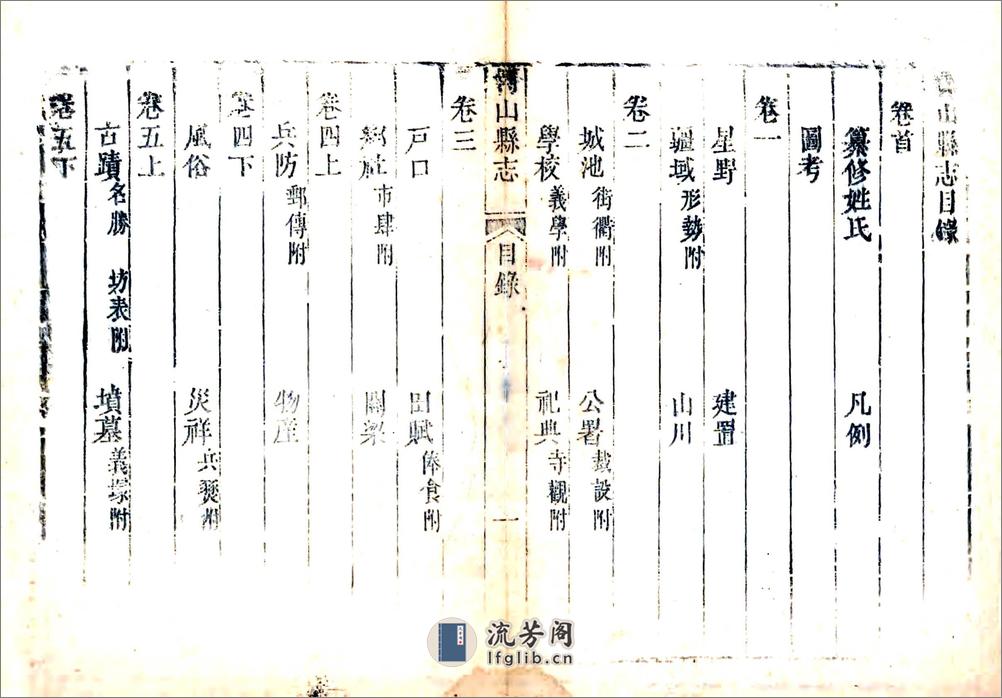 山縣志目錄
卷首
纂修姓氏 凡例
圖考
卷一
星野 建置
疆域形勢附 山川
卷二
城池街衢附 公署裁設附
學校義學附 祀典寺觀附
山縣志 目錄 一
卷三
戸口 田賦俸食附
鄉社市肆附 關梁
卷四上
兵防郵傳附 物產
卷四下
風俗 災祥兵燹附
卷五上
古蹟名勝 坊表附 墳墓義塚附
卷五下
流芳阁
lfglib.cn